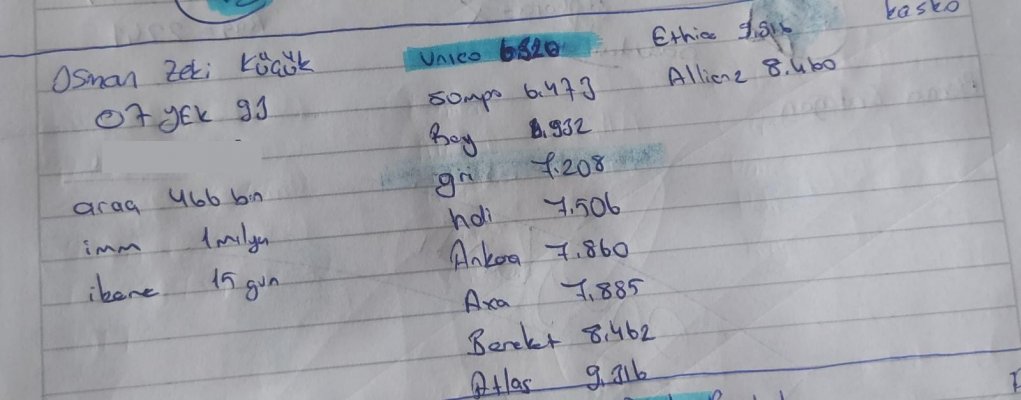 kasko
Osman Zeki Küçük
07 YEK 91
araç 466 bin
imm 1 milyn
ikame 15 gün
Unico 6820
Sompo 6.473
Ray 6.932
gri 7.208
hdi 7.506
Ankara 7.860
Axa 7.885
Bereket 8.462
Atlas 9.316
Ethica 9.816
Allianz 8.460